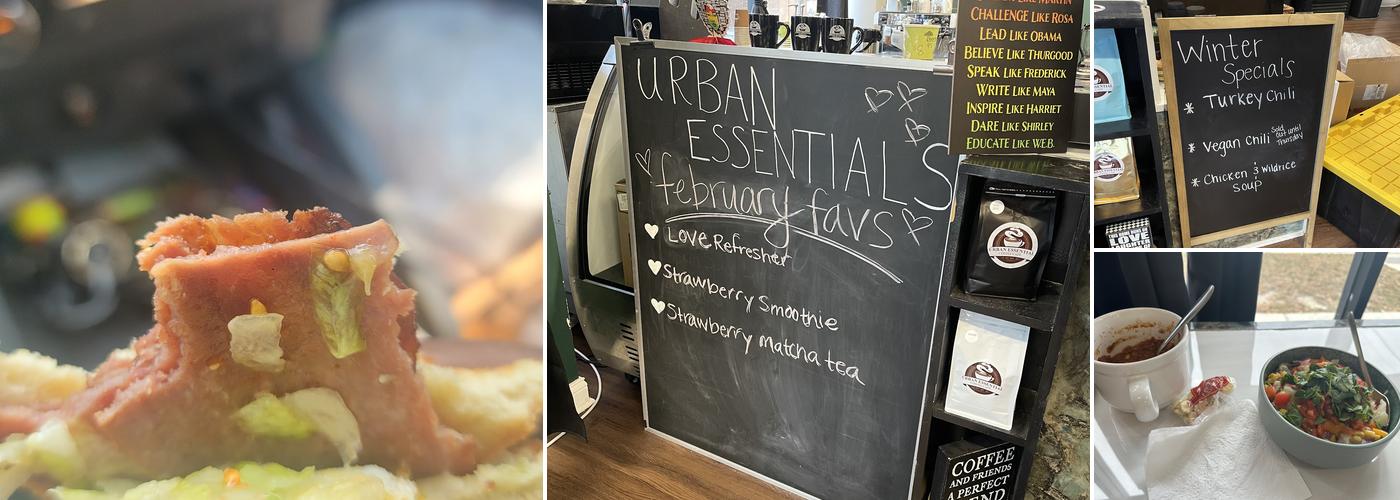 URBAN
ESSENTIALS
february favs
Love Refresher
Strawberry Smoothie
Strawberry matcha tea
LIKE MARTIN
CHALLENGE LIKE ROSA
LEAD LIKE OBAMA
BELIEVE LIKE THURGOOD
SPEAK LIKE FREDERICK
WRITE LIKE MAYA
INSPIRE LIKE HARRIET
DARE LIKE SHIRLEY
EDUCATE LIKE W.E.B.
URBAN ESSENTIAL
URBAN ESSENTIAL
COFFEE
AND FRIENDS
A PERFECT
Winter
Specials
* Turkey Chili
* Vegan Chili Sold out until Thursday
* Chicken & Wildrice
Soup
LOVE